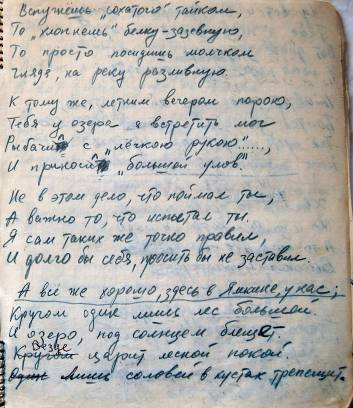 Вспугнёшь „сохатого" тайком,
То „хлопнешь" белку-зазевную,
То просто посидишь молчком
Глядя, на реку разливную.
К тому же, летним вечером порою,
Тебя у озера я встретить мог
Рыбачил с „лёгкою рукою".....,
И приносил „большой улов".
Не в этом дело, что поймал ты,
А важно то, что испытал ты.
Я сам таких же точно правил,
И долго бы себя, просить бы не заставил.
А всё же хорошо, здесь в Ямкине, у нас;
Кругом один лишь лес большой.
И озеро, под солнцем блещет.
Везде
Кругом царит лесной покой.
Один лишь соловей в кустах трепещит.